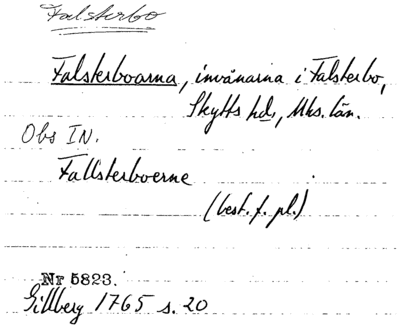 Falsterbo
Falsterboarna, invånarna i Falsterbo,
Skytts hd, Mhs. län.
Obs IN.
Fallsterboerne
(best. f. pl.)
Nr 5823.
Gillberg 1765 s. 20